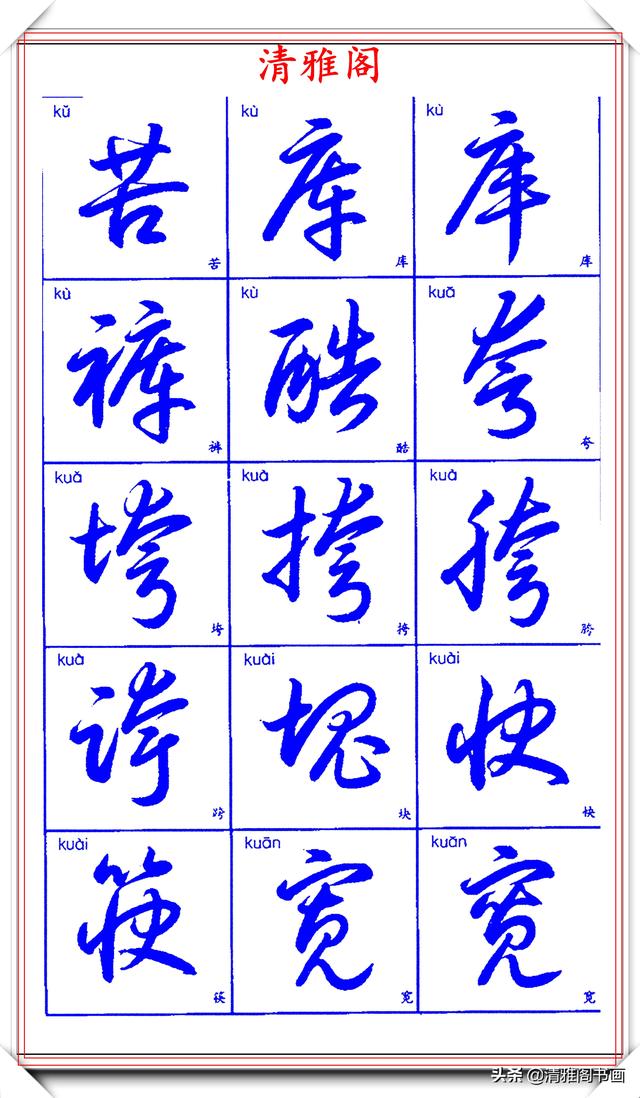 清雅阁
kǔ kù kù
苦 库 库
苦 库 库
kù kù kuā
裤 酷 夸
裤 酷 夸
kuǎ kuà kuà
垮 挎 胯
垮 挎 胯
kuà kuài kuài
跨 塊 快
跨 块 快
kuài kuān kuān
筷 寬 寬
筷 宽 宽
头条 @清雅阁书画